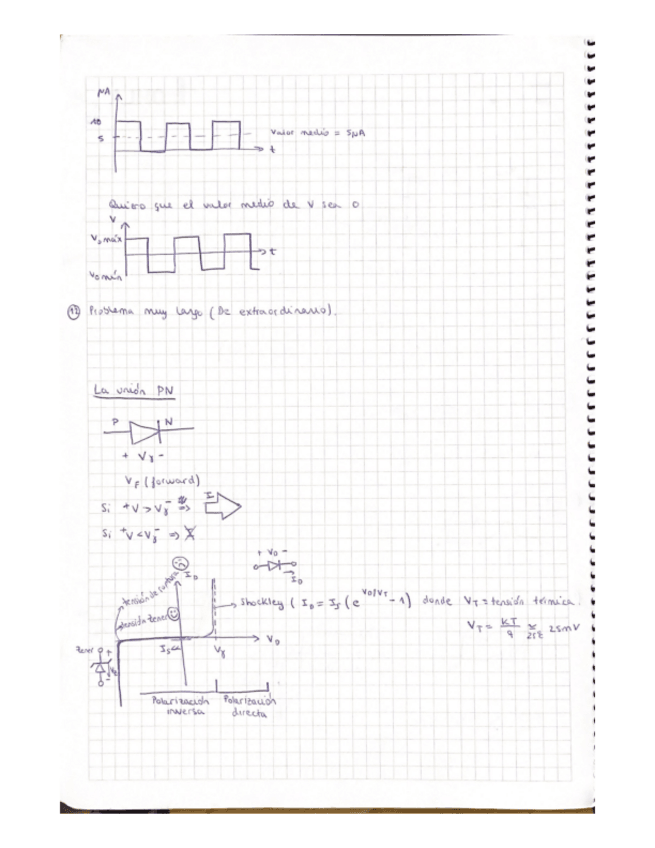 μA
10
5
Valor medio = 5μA
t
Quiero que el valor medio de V sea 0
V
Vo máx
t
Vo mín
12 Problema muy largo (De extraordinario).
La unión PN
P N
+ Vγ -
VF (forward)
Si +V > Vγ- => I
Si +V < Vγ- => I
+ VD -
ID
tensión de ruptura
ID
tensión zener
Shockley ( ID = IS (e^VD/VT - 1) donde VT = tensión térmica.
VT = KT/q ≈ 25mV
Zener +
VZ
-
IS
Vγ
VD
Polarización inversa
Polarización directa